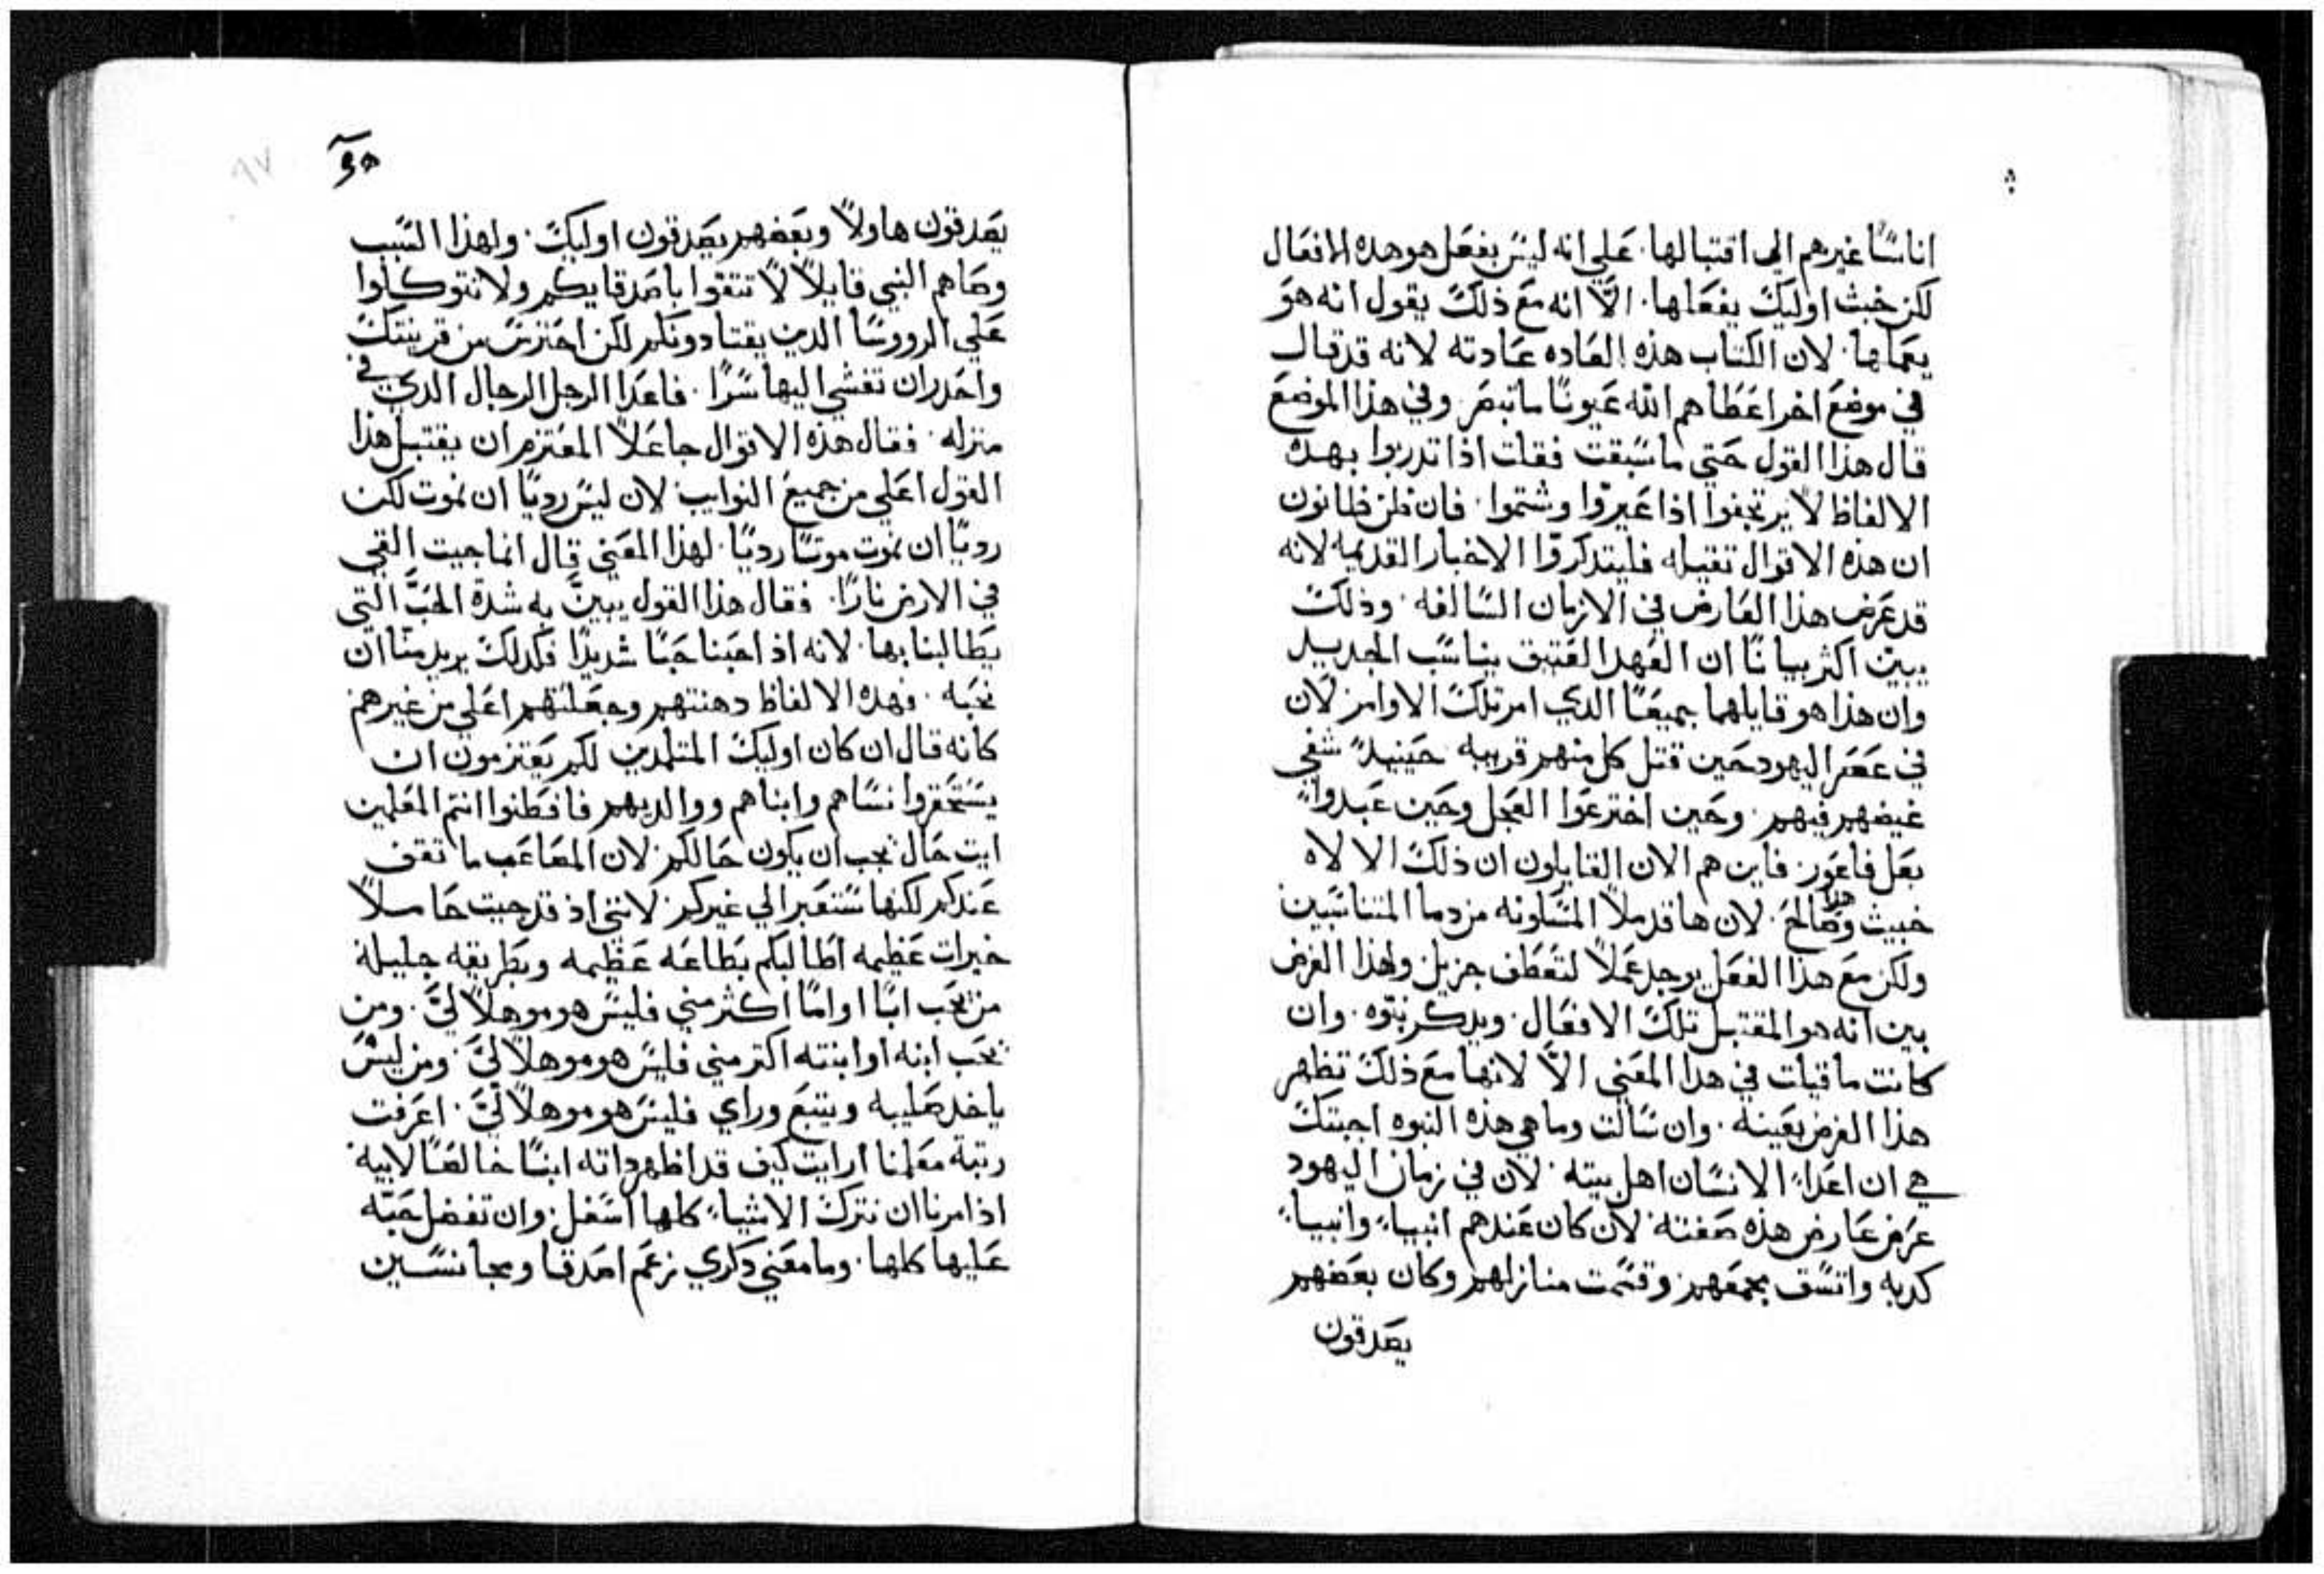 اناسًا غيرهم الى اقتبالها. علي انه ليس بفعل هو هده الافعال
لكن خبث اوليك يفعلها. الّا انه مع ذلك يقول انه هو
يعملها. لان الكتاب هذه العاده عادته لانه قد قال
في موضع اخر اعطاهم الله عيونًا ما تبصر. وفي هذا الموضع
قال هذا القول حتي ما سبقت فقلت اذا تدربوا بهده
الالفاظ لا يرتجفوا اذا عيروّا وشتموا. فان ظن ظانون
ان هذه الاقوال تقيله فليتدكروّا الاخبار القديمه لانه
قد عرض هذا العارض في الازمان السالفه. وذلك
يبين اكثر بيانًا ان العهد العتيق يناسب الجديد
وان هذا هو قايلهما جميعًا الدي امر تلك الاوامر لان
في عصر اليهود حين قتل كل منهم قريبه حينيدً شفي
غيضهم فيهم. وحين اخترعوا العجل وحين عبدواً
بعل فاعور. فاين هم الان القايلون ان ذلك الالاه
خبيث وهذا صالح. لان ها قد ملا المسلونه من دما المتناسبين
ولكن مع هذا الفعل يوجد عملاً لتعطف جزيل ولهذا الغرض
بين انه هو المقتبل تلك الافعال. ويدكر بتوه. وان
كانت ما قيلت في هدا المعني الّا لانها مع ذلك تظهر
هذا الغرض بعينه. وان سالت وما هي هذه النبوه اجبتك
هي ان اعداءً الانسان اهل بيته. لان في زمان اليهود
عرض عارض هذه صفته. لان كان عندهم انبياءً وانبياءً
كدبه واتسق بجمعهم وقسمت منازلهم وكان بعضهم
يصدقون
٩٧
يصدقون هاولاً وبعضهم يصدقون اوليك. ولهذا السبب
وصاهم النبي قايلاً لا تتقوا باصدقايكم ولا تتوكلوا
علي الرووسا الدين يقتادونكم لكن احترس من قرينتك
واحدر ان تفشي اليها سرًا. فاعدا الرجل الرجال الدي في
منزله. فقال هذه الاقوال جاعلاً المعتزم ان يقتبل هذا
القول اعلي من جميع النوايب لان ليس رديًا ان نموت لكن
رديًا ان نموت موتًا رديًا. لهذا المعني قال انما جيت القي
في الارض نارًا. فقال هذا القول يبين به شدة الحبّ التي
يطالبنا بها. لانه اذ احبنا حبًا شديدًا فلدلك يريد منا ان
نحبه. فهذه الالفاظ دهنتهم وجعلتهم اعلي من غيرهم
كانه قال ان كان اوليك المتلمدين لكم يعتزمون ان
يستحقروا نساهم وابناهم ووالديهم فافطنوا انتم المعلمين
ايت حال يجب ان يكون حالكم. لان المصاعب ما تقف
عندكم لكنها ستعبر الي غيركم. لانني اذ قد جيت حاملاً
خيرات عظيمه اطالبكم بطاعه عظيمه وبطريقه جليلة
من يحب ابًا او امًا اكثر مني فليس هو موهلاً ليّ. ومن
يحب ابنه او ابنته اكتر مني فليس هو موهلاً ليّ. ومن ليس
ياخد صليبه ويتبع وراي فليس هو موهلاً ليّ. اعرفت
رتبة معلمنا ارايت كيف قد اظهر داته ابنًا خالصًا لابيه
اذ امرنا ان نترك الاشياءً كلها اسفل. وان تفضل حبه
عليها كلها. وما معني دكري زعم اصدقا ومجانسين